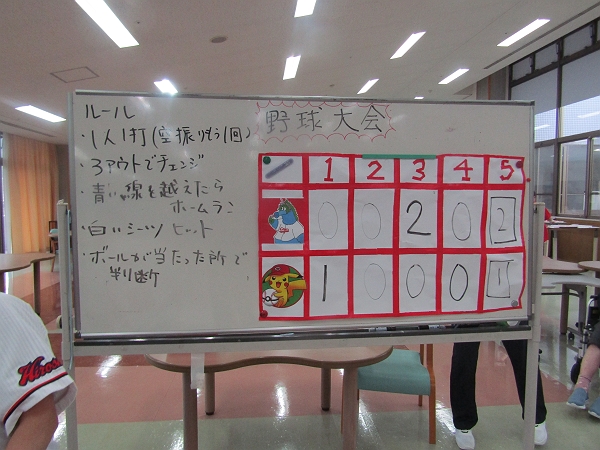 ルール
・1人1打(空振りもう1回)
・3アウトでチェンジ
・青い線を越えたら
ホームラン
・白いシーツ ヒット
・ボールが当たった所で
判断
野球大会
1 2 3 4 5
0 0 2 0 2
1 0 0 0 1
Hiros